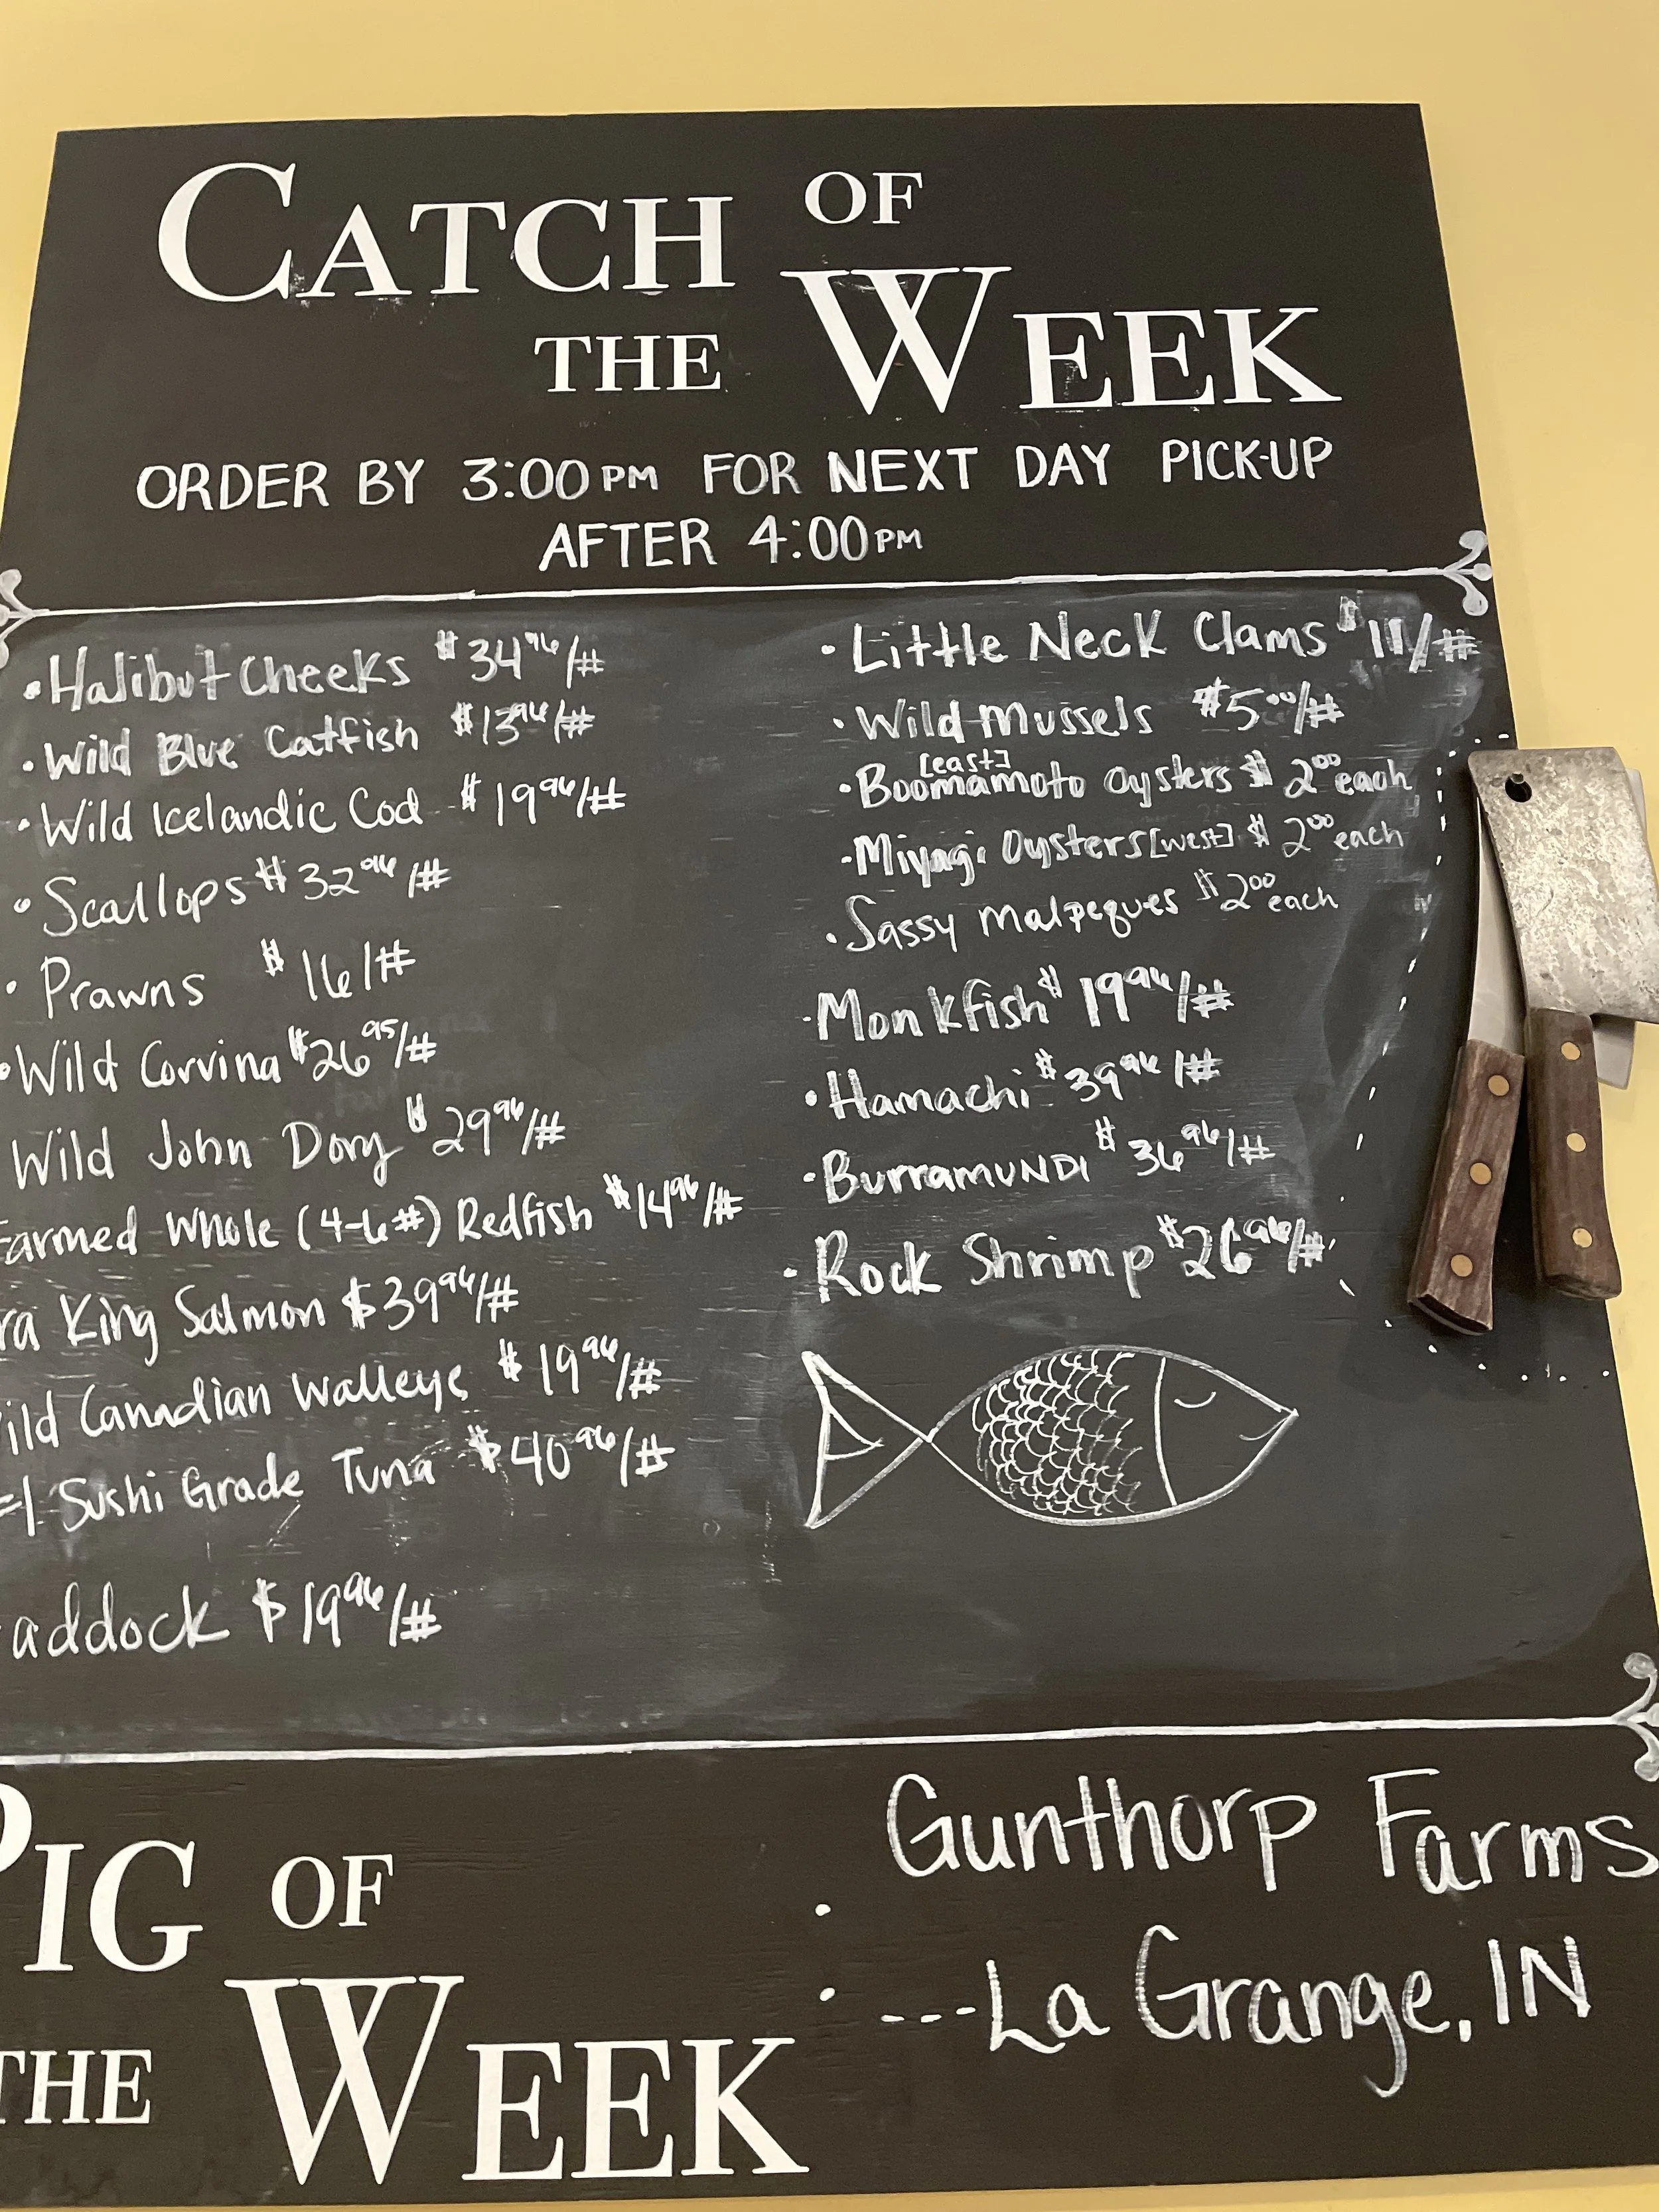 CATCH OF
THE WEEK
ORDER BY 3:00PM FOR NEXT DAY PICK-UP
AFTER 4:00PM
• Halibut Cheeks $34⁹⁶/#
• Wild Blue Catfish $13⁹⁶/#
• Wild Icelandic Cod $19⁹⁶/#
• Scallops $32⁹⁶/#
• Prawns $16/#
• Wild Corvina $26⁹⁵/#
Wild John Dory $29⁹⁶/#
Farmed Whole (4-6#) Redfish $14⁹⁶/#
ra King Salmon $39⁹⁶/#
ild Canadian Walleye $19⁹⁶/#
#1 Sushi Grade Tuna $40⁹⁶/#
addock $19⁹⁶/#
• Little Neck Clams $11/#
• Wild Mussels $5⁰⁰/#
[east]
• Boomamoto Oysters $2⁰⁰ each
• Miyagi Oysters [west] $2⁰⁰ each
• Sassy Malpeques $2⁰⁰ each
• Monkfish $19⁹⁶/#
• Hamachi $39⁹⁶/#
• BurramuNDI $36⁹⁶/#
• Rock Shrimp $26⁹⁶/#
PIG OF
THE WEEK
Gunthorp Farms
---La Grange, IN